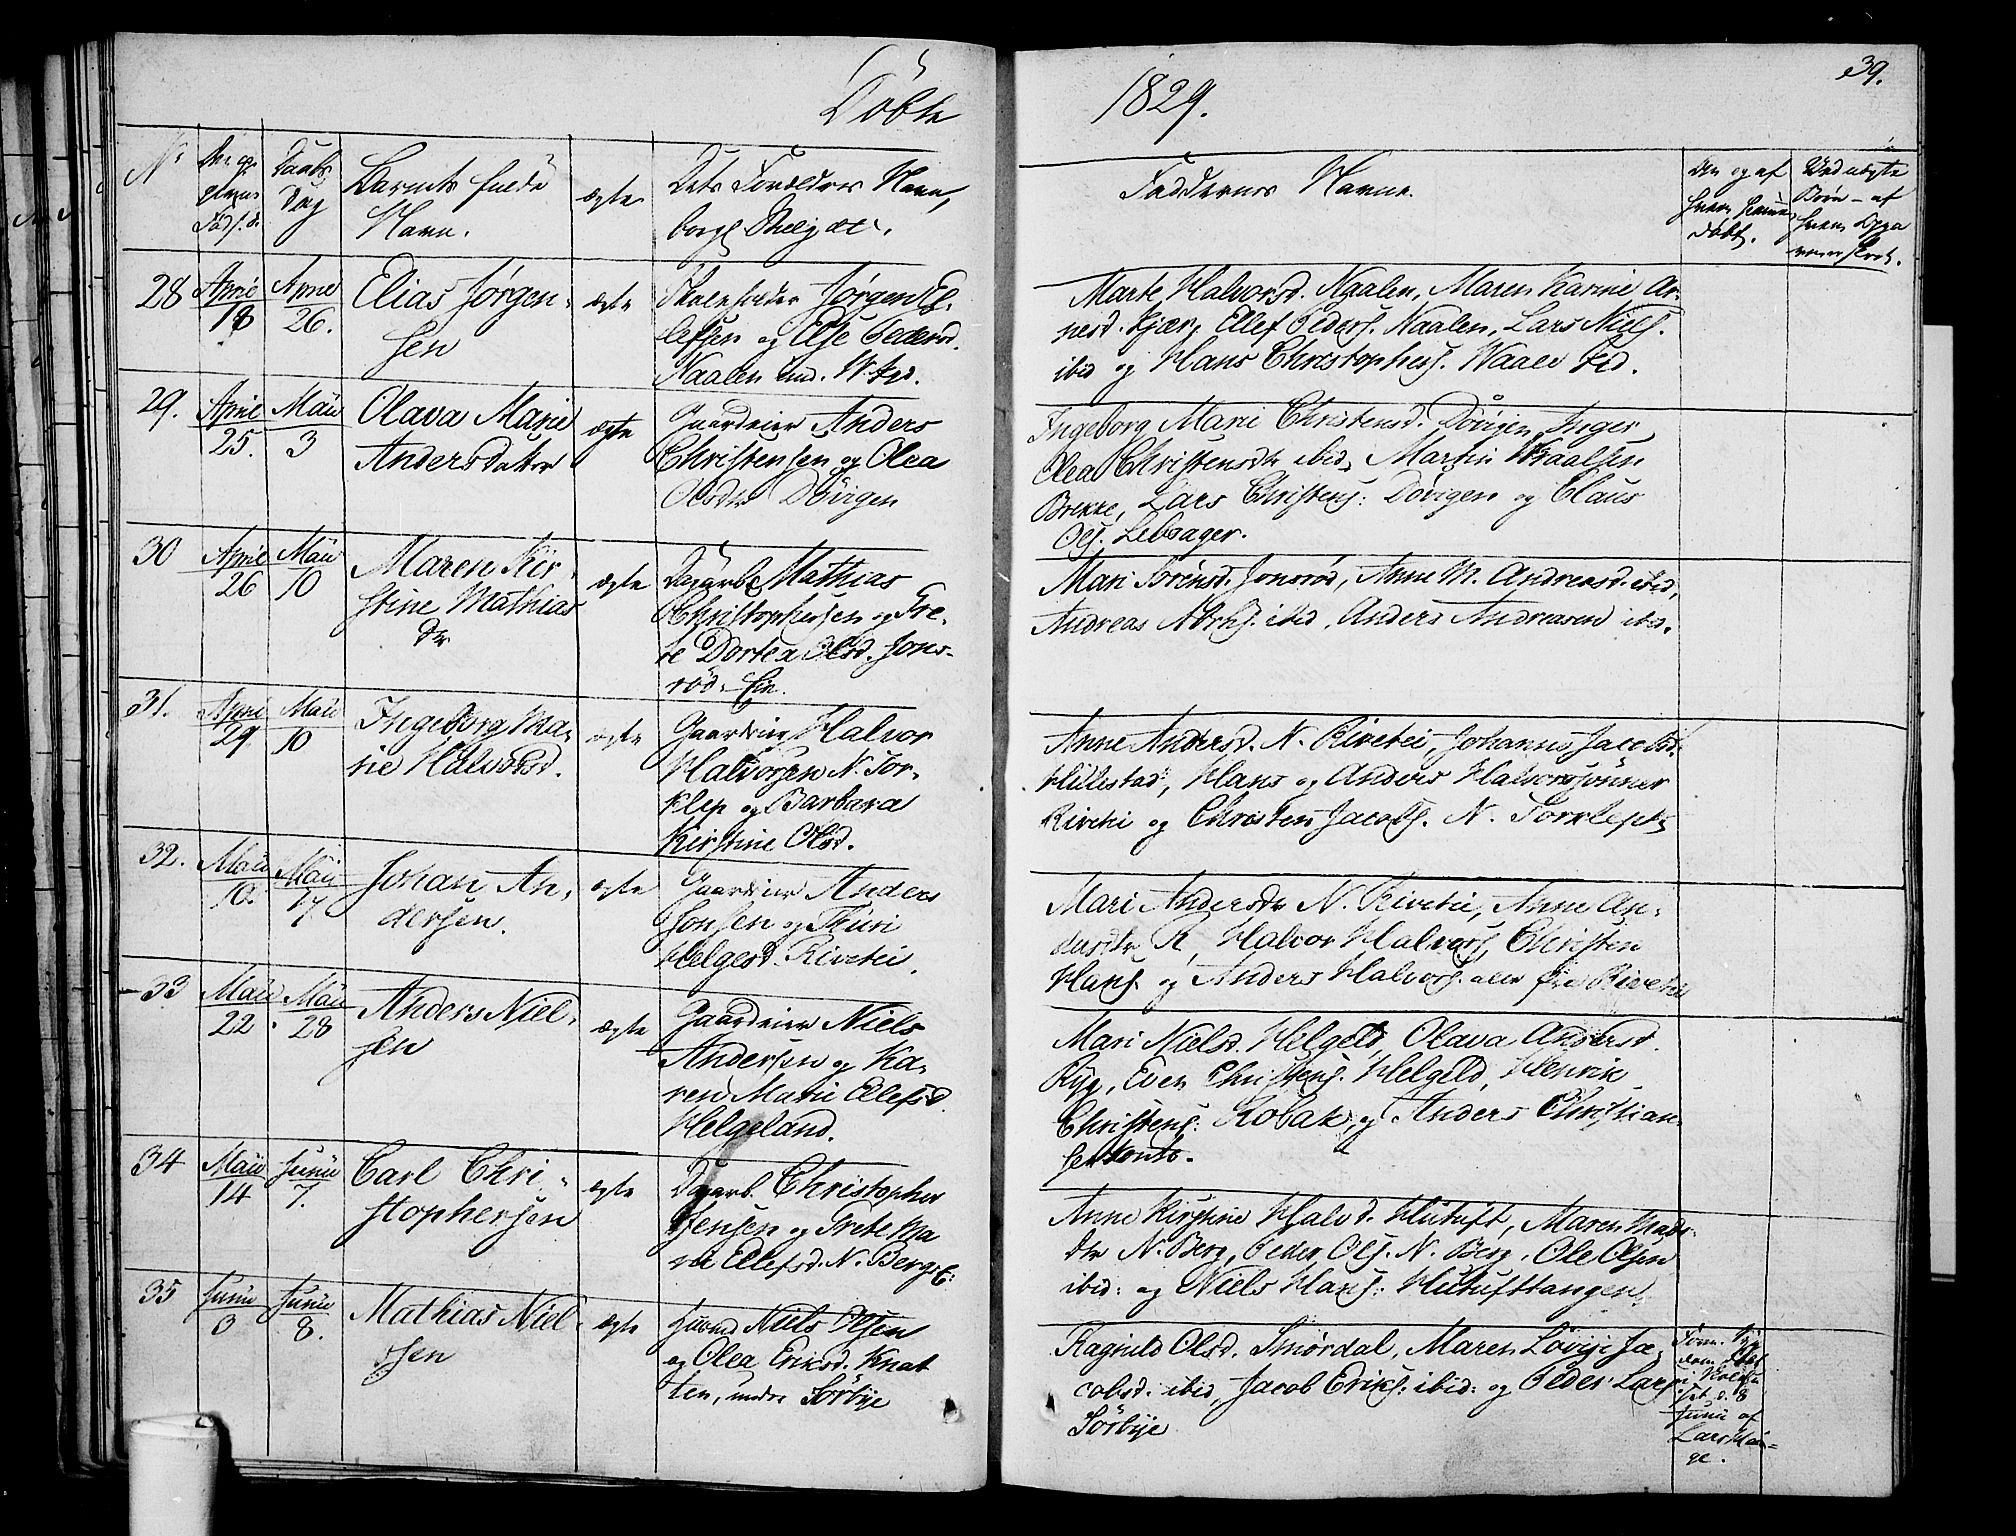 Döbte
1829.
39.
No
Daabs
Dag
Barnets fulde
Navn.
ægte
Dets Forældres Navn,
Faddernes Navne.
Den og af
hvem hjemme
døbt.
Udenægte
Børn – af
hvem Opga
28 April 18 April 26. Elias Jørgen-
sen
ægte
Skoleholder Jørgen El-
lefsen og Else Pedersd.
Naalen und. W. Aas.
Marte Halvorsd. Naalen, Maren Karine Ar-
nesd. Kjær, Ellef Peders. Naalen, Lars Niels.
ibid og Hans Christophers. Waale Eid.
29. April 25. Maii 3 Olava Marie
Andersdatter
ægte
Gaardeier Anders
Christensen og Olea
Olsdtr Dövigen
Ingeborg Marie Christensd. Dövigen, Inger
Olea Christensdtr ibid, Martin Waalsen
Brekke, Lars Christens: Dövigen og Claus
Ols. Lebsager.
30 April 26 Maii 10 Maren Kir-
stine Mathias
dtr
ægte
Dagarb. Mathias
Christophersen og Gre-
te Dortea Olsd. Jons-
röd. Eie.
Mari Sörensd. Jonsröd, Anne M. Andreasd. ibid,
Andreas Abrhs. ibid, Anders Andreasen ibid.
31. April 29 Maii 10 Ingeborg Ma-
rie Halvorsd.
ægte
Gaardeier Halvor
Halvorsen N. Tor-
klep og Barbara
Kirstine Olsd.
Anne Andersd. N. Rivetei, Johannes Jacobs.
Hillestad, Hans og Anders Halvorssönner
Rivetei og Christen Jacobs. N. Torklep
32. Maii 10. Maii 17 Johan An-
dersen.
ægte
Gaardeier Anders
Jonsen og Thuri
Helgesd. Rivetei.
Mari Andersdtr N. Rivetei, Anne An-
dersdtr R, Halvor Halvors, Christen
Hans. og Anders Halvors. alle fra Rivetei
33 Maii 22. Maii 28 Anders Niel-
sen
ægte
Gaardeier Niels
Andersen og Ka-
ren Marie Ellefsd.
Helgeland.
Mari Nielsd. Helgeld, Olava Andersd.
Ryg, Even Christens. Helgeld, Henrik
Christens: Robak, og Anders Christian-
sen Tonto.
34 Maii 14 Junii 7. Carl Chri-
stophersen
ægte
Dagarb. Christopher
Jensen og Grete Ma
rie Ellefsd. N. Bergs E:
Anne Kirstine Halvd. Hütuft, Maren Mads-
dtr N. Berg, Peder Ols. N. Berg, Ole Olsen
ibid: og Niels Hans: Hütufttangen.
35 Junii 3 Junii 8. Mathias Niel
sen
ægte
Niels Olsen
og Olea Eriksd. Knat
ten, under Sörbye
Ragnild Olsd. Smördal, Maren Lovise Ja-
cobsd. ibid, Jacob Eriks: ibid: og Peder Lars
Sörbye
Junii af
Lars Hau-
ge.